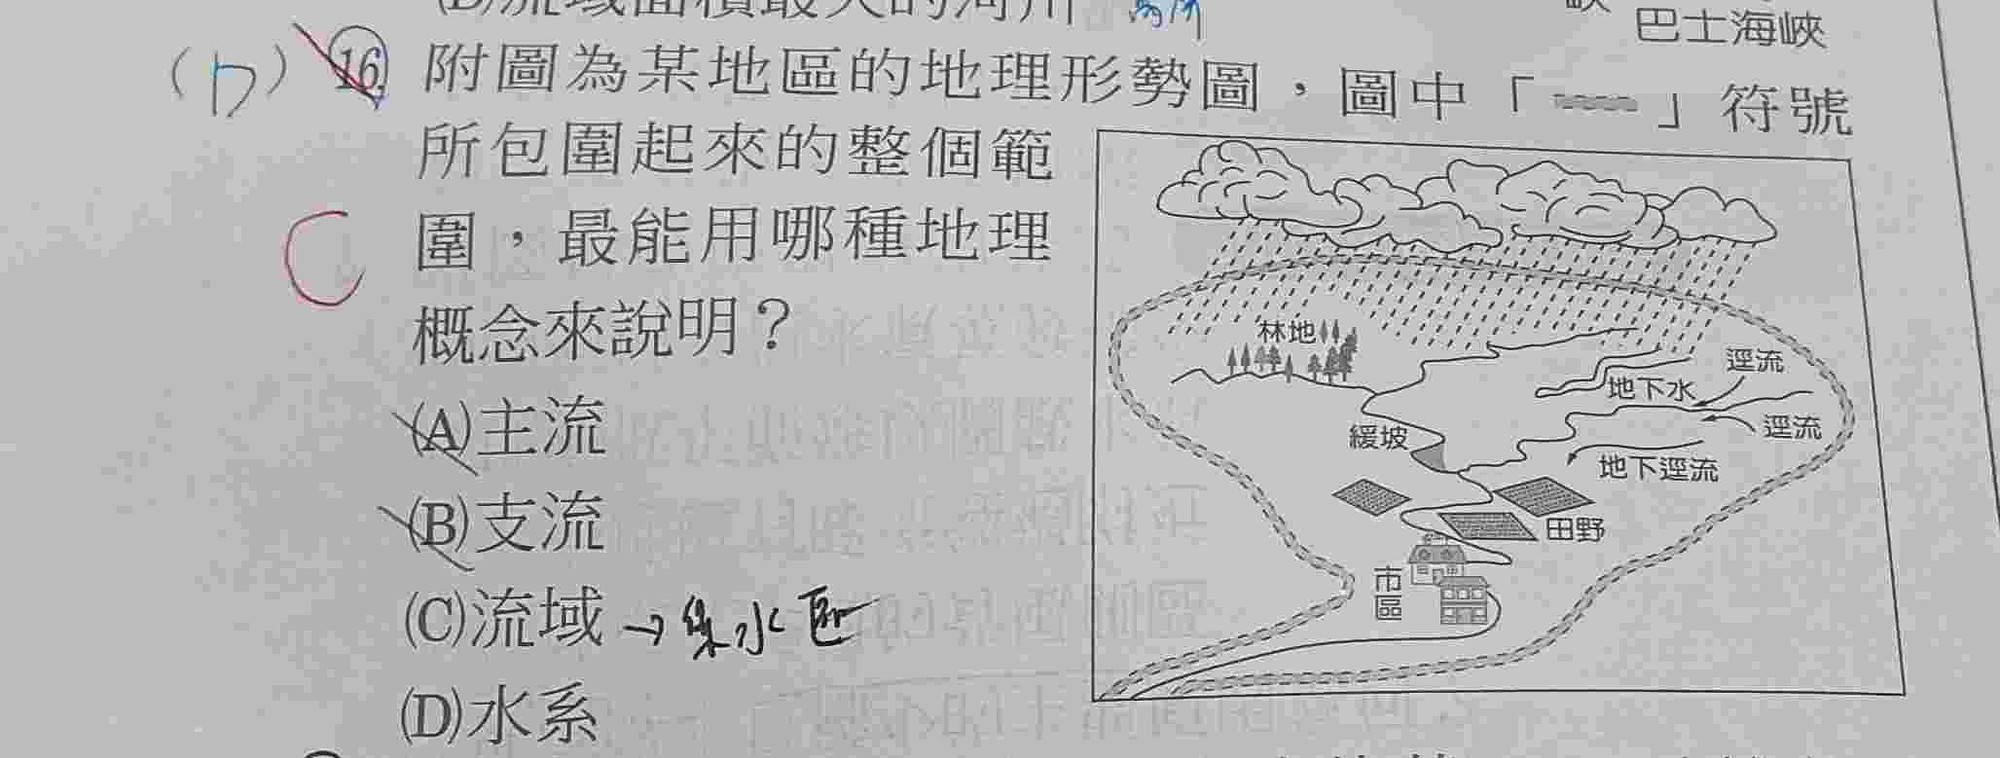 (D)流域面積最大的河川
巴士海峽
(D) 16. 附圖為某地區的地理形勢圖，圖中「 」符號
所包圍起來的整個範
圍，最能用哪種地理
概念來說明？
C
(A)主流
(B)支流
(C)流域 → 集水區
(D)水系
林地
地下水
逕流
緩坡
逕流
地下逕流
田野
市區